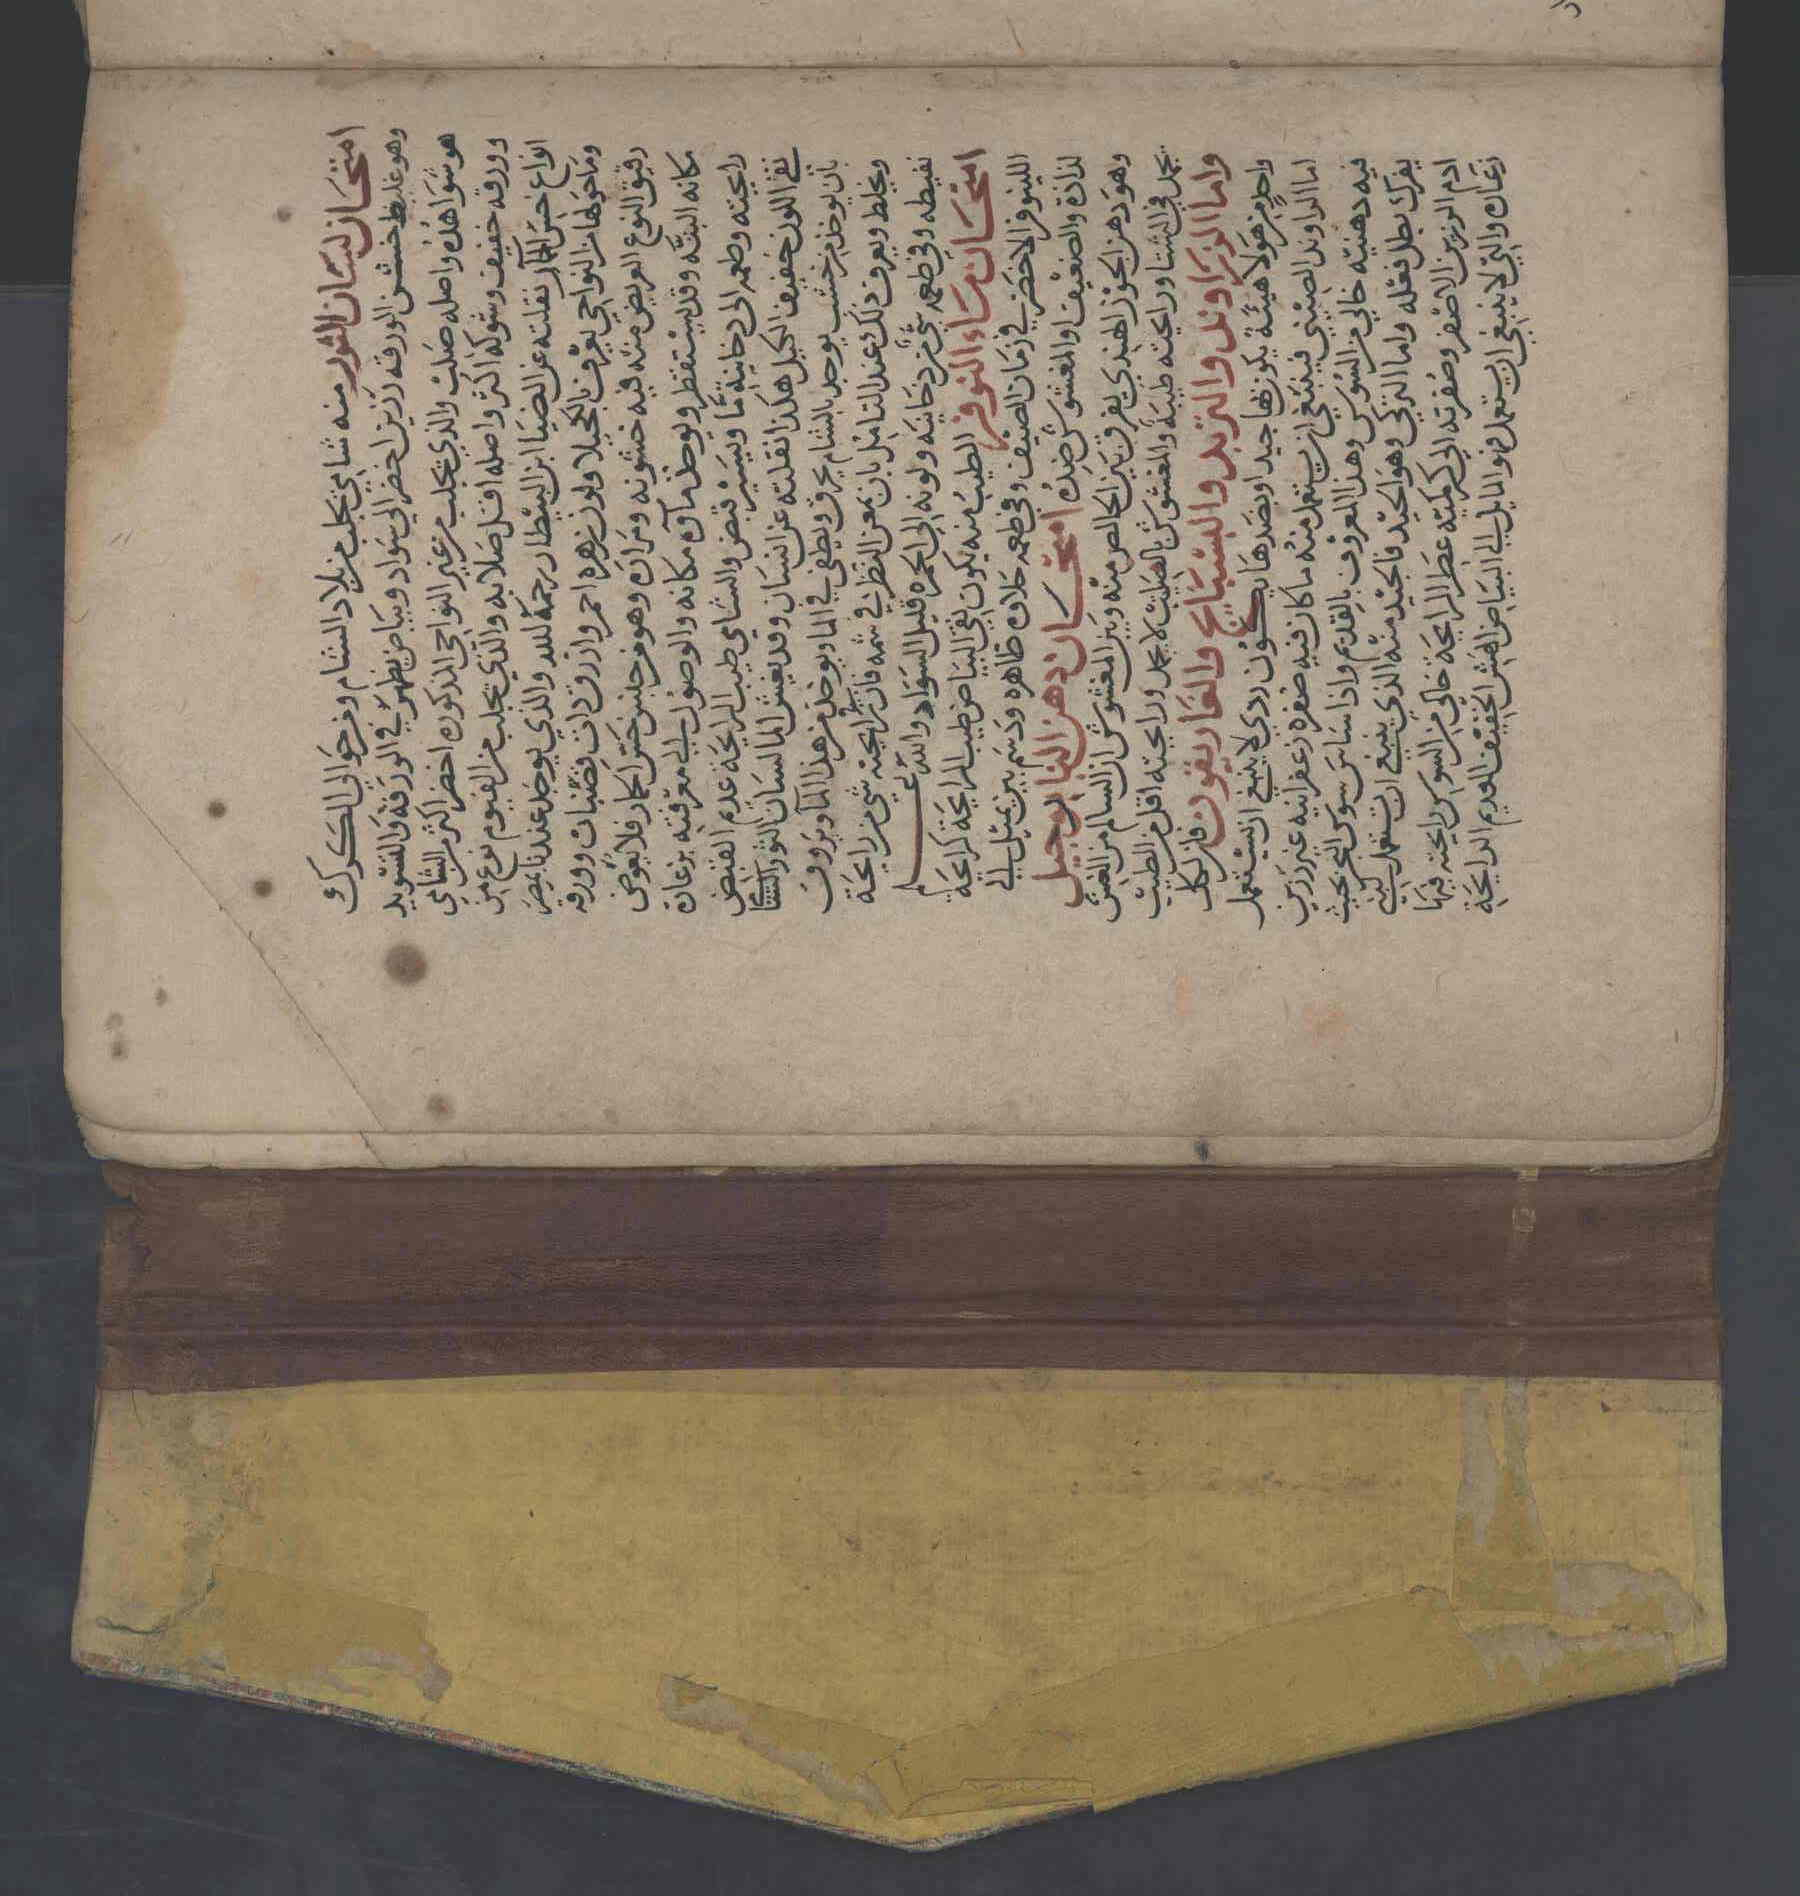 امتحان لسان الثور منه شامي يجلب من بلاد الشام ومن حوالي الكرك
وهو غليظ خشن الورقه رزين اخضر الي سواد وبياض يظهر في الورقة والتسويد
هو شواهده واصله صلب والذي يجلب من غير النواحي المذكوره اخضر اكثر من الشامي
وورقه خفيف وشوكه اكثر واصله اقل صلابه والذي يجلب من الفيوم نوع من
انواع خس الحمار نقلته عن الضيا ابن البيطار رحمه الله والذي يوجد عندنا بمصر
وما حولها من النواحي يعرف بالكحيلا ولون زهره احمر وازرق ذات قضبان وورقه
رقيق النوع العريض منه فيه خشونه ومراره وهو من جنس خس الحمار فلا يعوض
مكانه البته وقد يستقطر ويوخذ ماؤه مكانه والوصول الي معرفته بزعان
رايحته وطعمه الى دخانية ما ويسير قبض والشامي طيب الرايحة عديم القبض
نقي اللون خفيف الكيل هكذا نقلته عن لسان وقد يغش الما لسان الثور الشامي
بان يوخذ من خشب يوجد بالشام يحرق ويطفي في الما ويوخذ من هذا الماء ويروق
ويخلط ويعرف ذلك عند التامل بان يمعن النظر في شمه فان في رايحته شي من رايحة
نفيطه وفي طعمه شي من دخانيه ولونه الى الحمره قليل السواد والله اعلم
امتحان ماء النوفر الطيب منه يكون نقي البياض طيب الرايحة كرايحة
اللينوفر الاخضر في زمان الصيف وفي طعمه حلاوه ظاهره ودسم يسير يميل الي
لذاذة والضعيف او المغشوش ضده امتحان دهن النابوجيل
وهو دهن الجوز الهندي يفرق بين الخالص منه وبين المغشوش ان السالم من الغش
يجمد في الشتا ورايحته طيبة والمغشوش بالصليب لا يجمد ورايحته اقل من الطيب
واما الزراوند والتربد والبسبايج والغاريقون فان لكل
واحد من هولا هيئة يكون بها جيدا وبضدها يكون ردي لا ينبغي ان يستعمل
اما الراوند الصيني فينبغي ان يستعمل منه ما كان فيه صفره زعفرانيه غير رزين
فيه دهنيه خالي من السوس وهذا المعروف بالقديم واذا ساس سوس البحر بحيث
يفرك بطل فعله واما التركي وهو الجيد فالجيد منه الذي ينبغي ان يستعمل كبير
ادم الرزين الاصفر وصفرته الي كركميته عطر الرايحة خالي من السوس رايحته فيها
زعفران والتي لا ينبغي ان يستعمل فهو المايل الي البياض الهش الخفيف العديم الرايحة